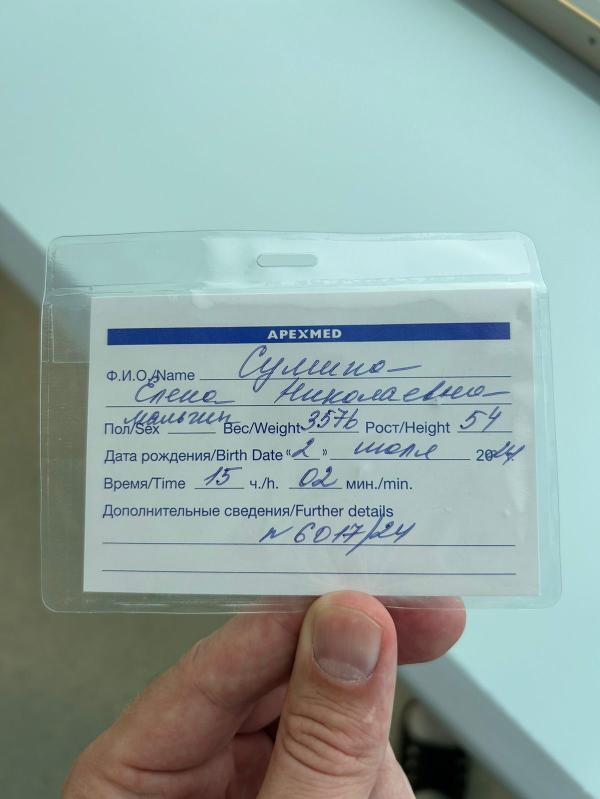 APEXMED
Ф.И.О./Name Сумина
Елена Николаевна
Пол/Sex мальчик Вес/Weight 3576 Рост/Height 54
Дата рождения/Birth Date "2" июля 2024
Время/Time 15 ч./h. 02 мин./min.
Дополнительные сведения/Further details
№6017/24